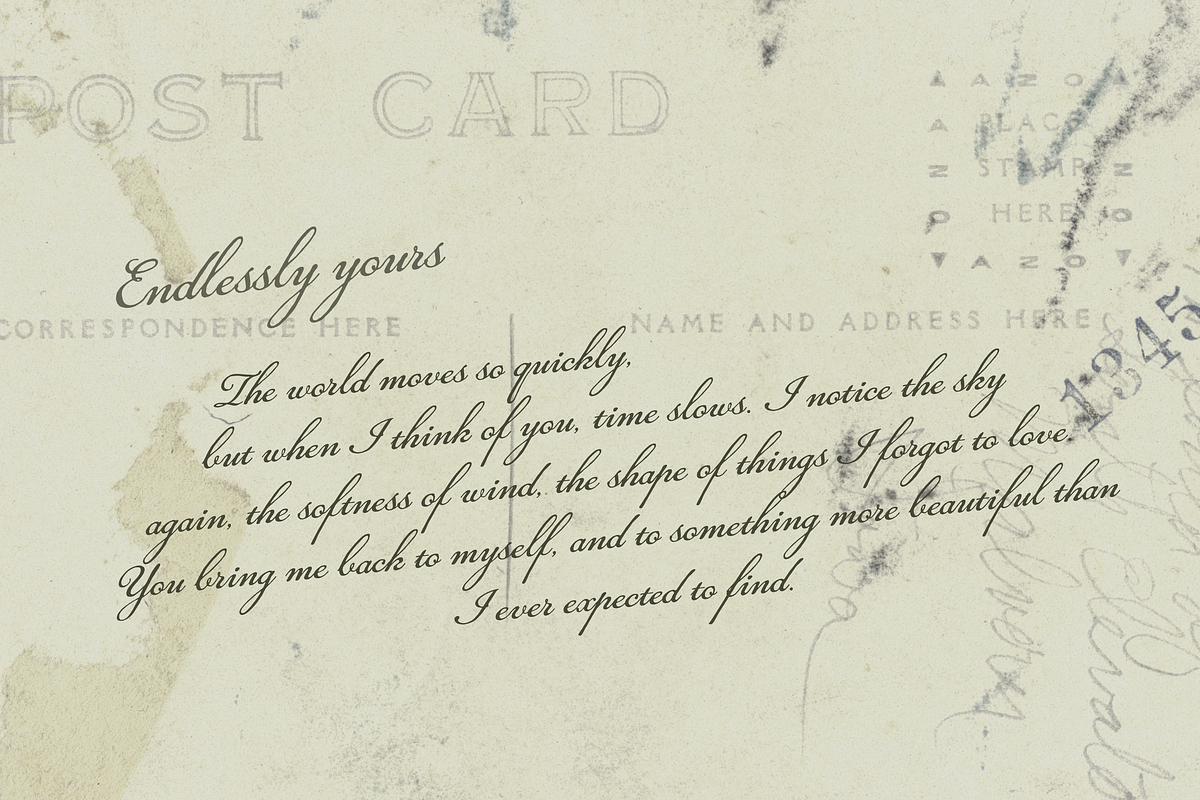 POST CARD
AZO
PLACE
STAMP
HERE
AZO
Endlessly yours
CORRESPONDENCE HERE
NAME AND ADDRESS HERE
12345
The world moves so quickly,
but when I think of you, time slows. I notice the sky
again, the softness of wind, the shape of things I forgot to love.
You bring me back to myself, and to something more beautiful than
I ever expected to find.